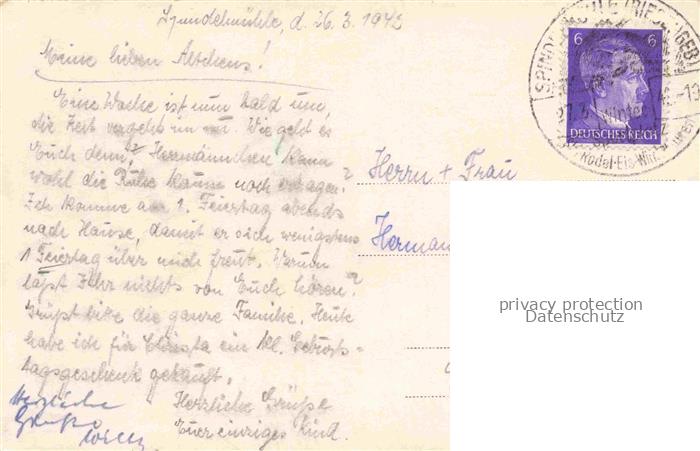 Spindelmühle, d. 26.3.1942
Meine lieben Altchens!
Eine Woche ist nun bald um,
die Zeit vergeht im nu. Wie geht es
Euch denn? Hermännchen kann
wohl die Ruhe kaum noch ertragen?
Ich komme am 1. Feiertag abends
nach Hause, damit er sich wenigstens
1 Feiertag über mich freut. Warum
laßt Ihr nichts von Euch hören?
Grüßt bitte die ganze Familie. Heute
habe ich für Christa ein kl. Geburts-
tagsgeschenk gekauft.
Herzliche Grüße
Euer einziges Kind.
Herzliche
Grüße
Willy
Herrn + Frau
Herman
6 6
DEUTSCHES REICH
SPINDELMÜHLE (RIESENGEB)
27.3.
Winter
Rodel-Eis-
privacy protection
Datenschutz